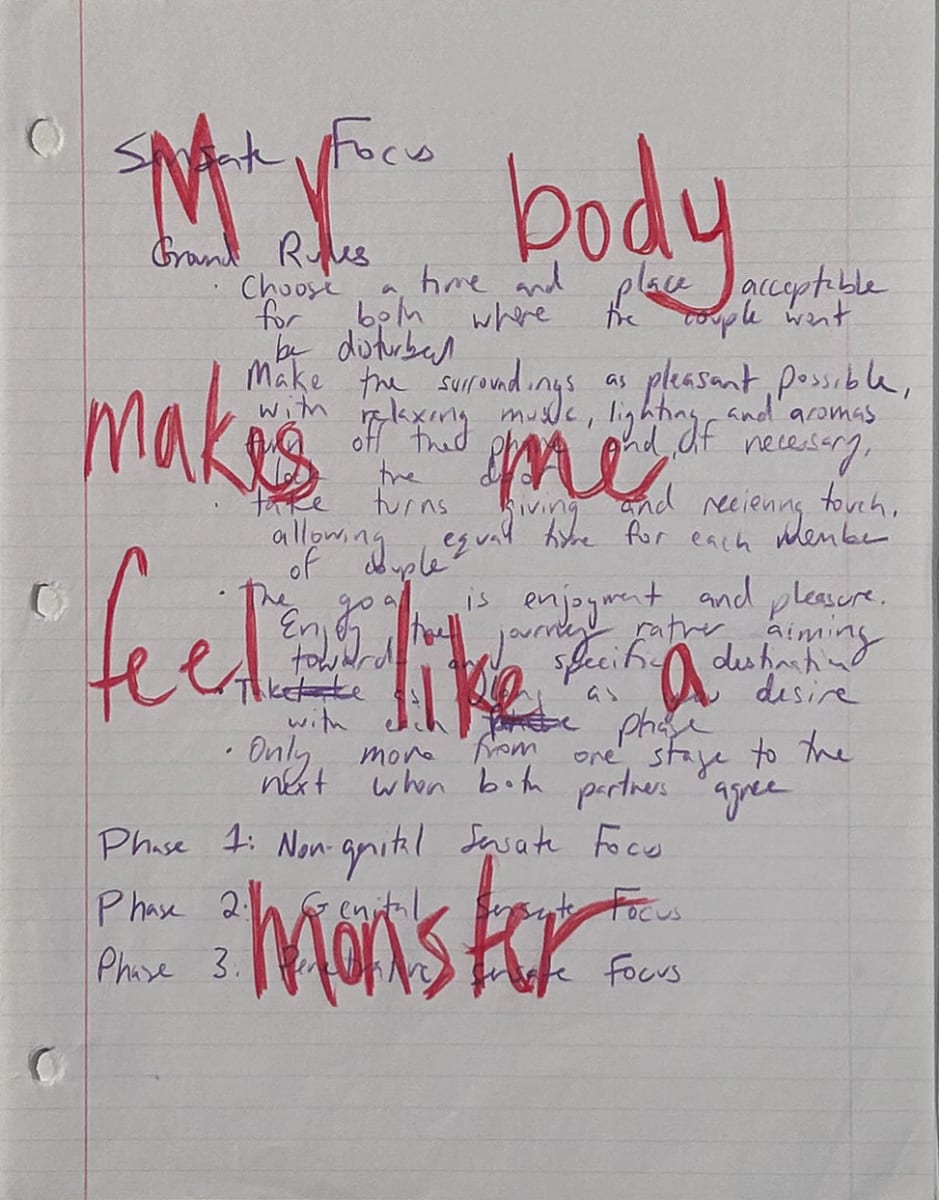 Sensate Focus
My body
Grand Rules
· Choose a time and place acceptible
for both where the couple wont
be disturbed
Make the surroundings as pleasant possible,
makes me
with relaxing music, lighting and aromas
turn off the phone and, if necessary,
lock the door
· take turns giving and recieving touch,
allowing equal time for each member
of couple
feel like a
· The goal is enjoyment and pleasure.
Enjoy the journey rather aiming
toward any specific destination
· Take as long as you desire
with each phase
· Only move from one stage to the
next when both partners agree
Phase 1: Non-genital Sensate Focus
monster
Phase 2: Genital Sensate Focus
Phase 3. Penetrative Sensate Focus